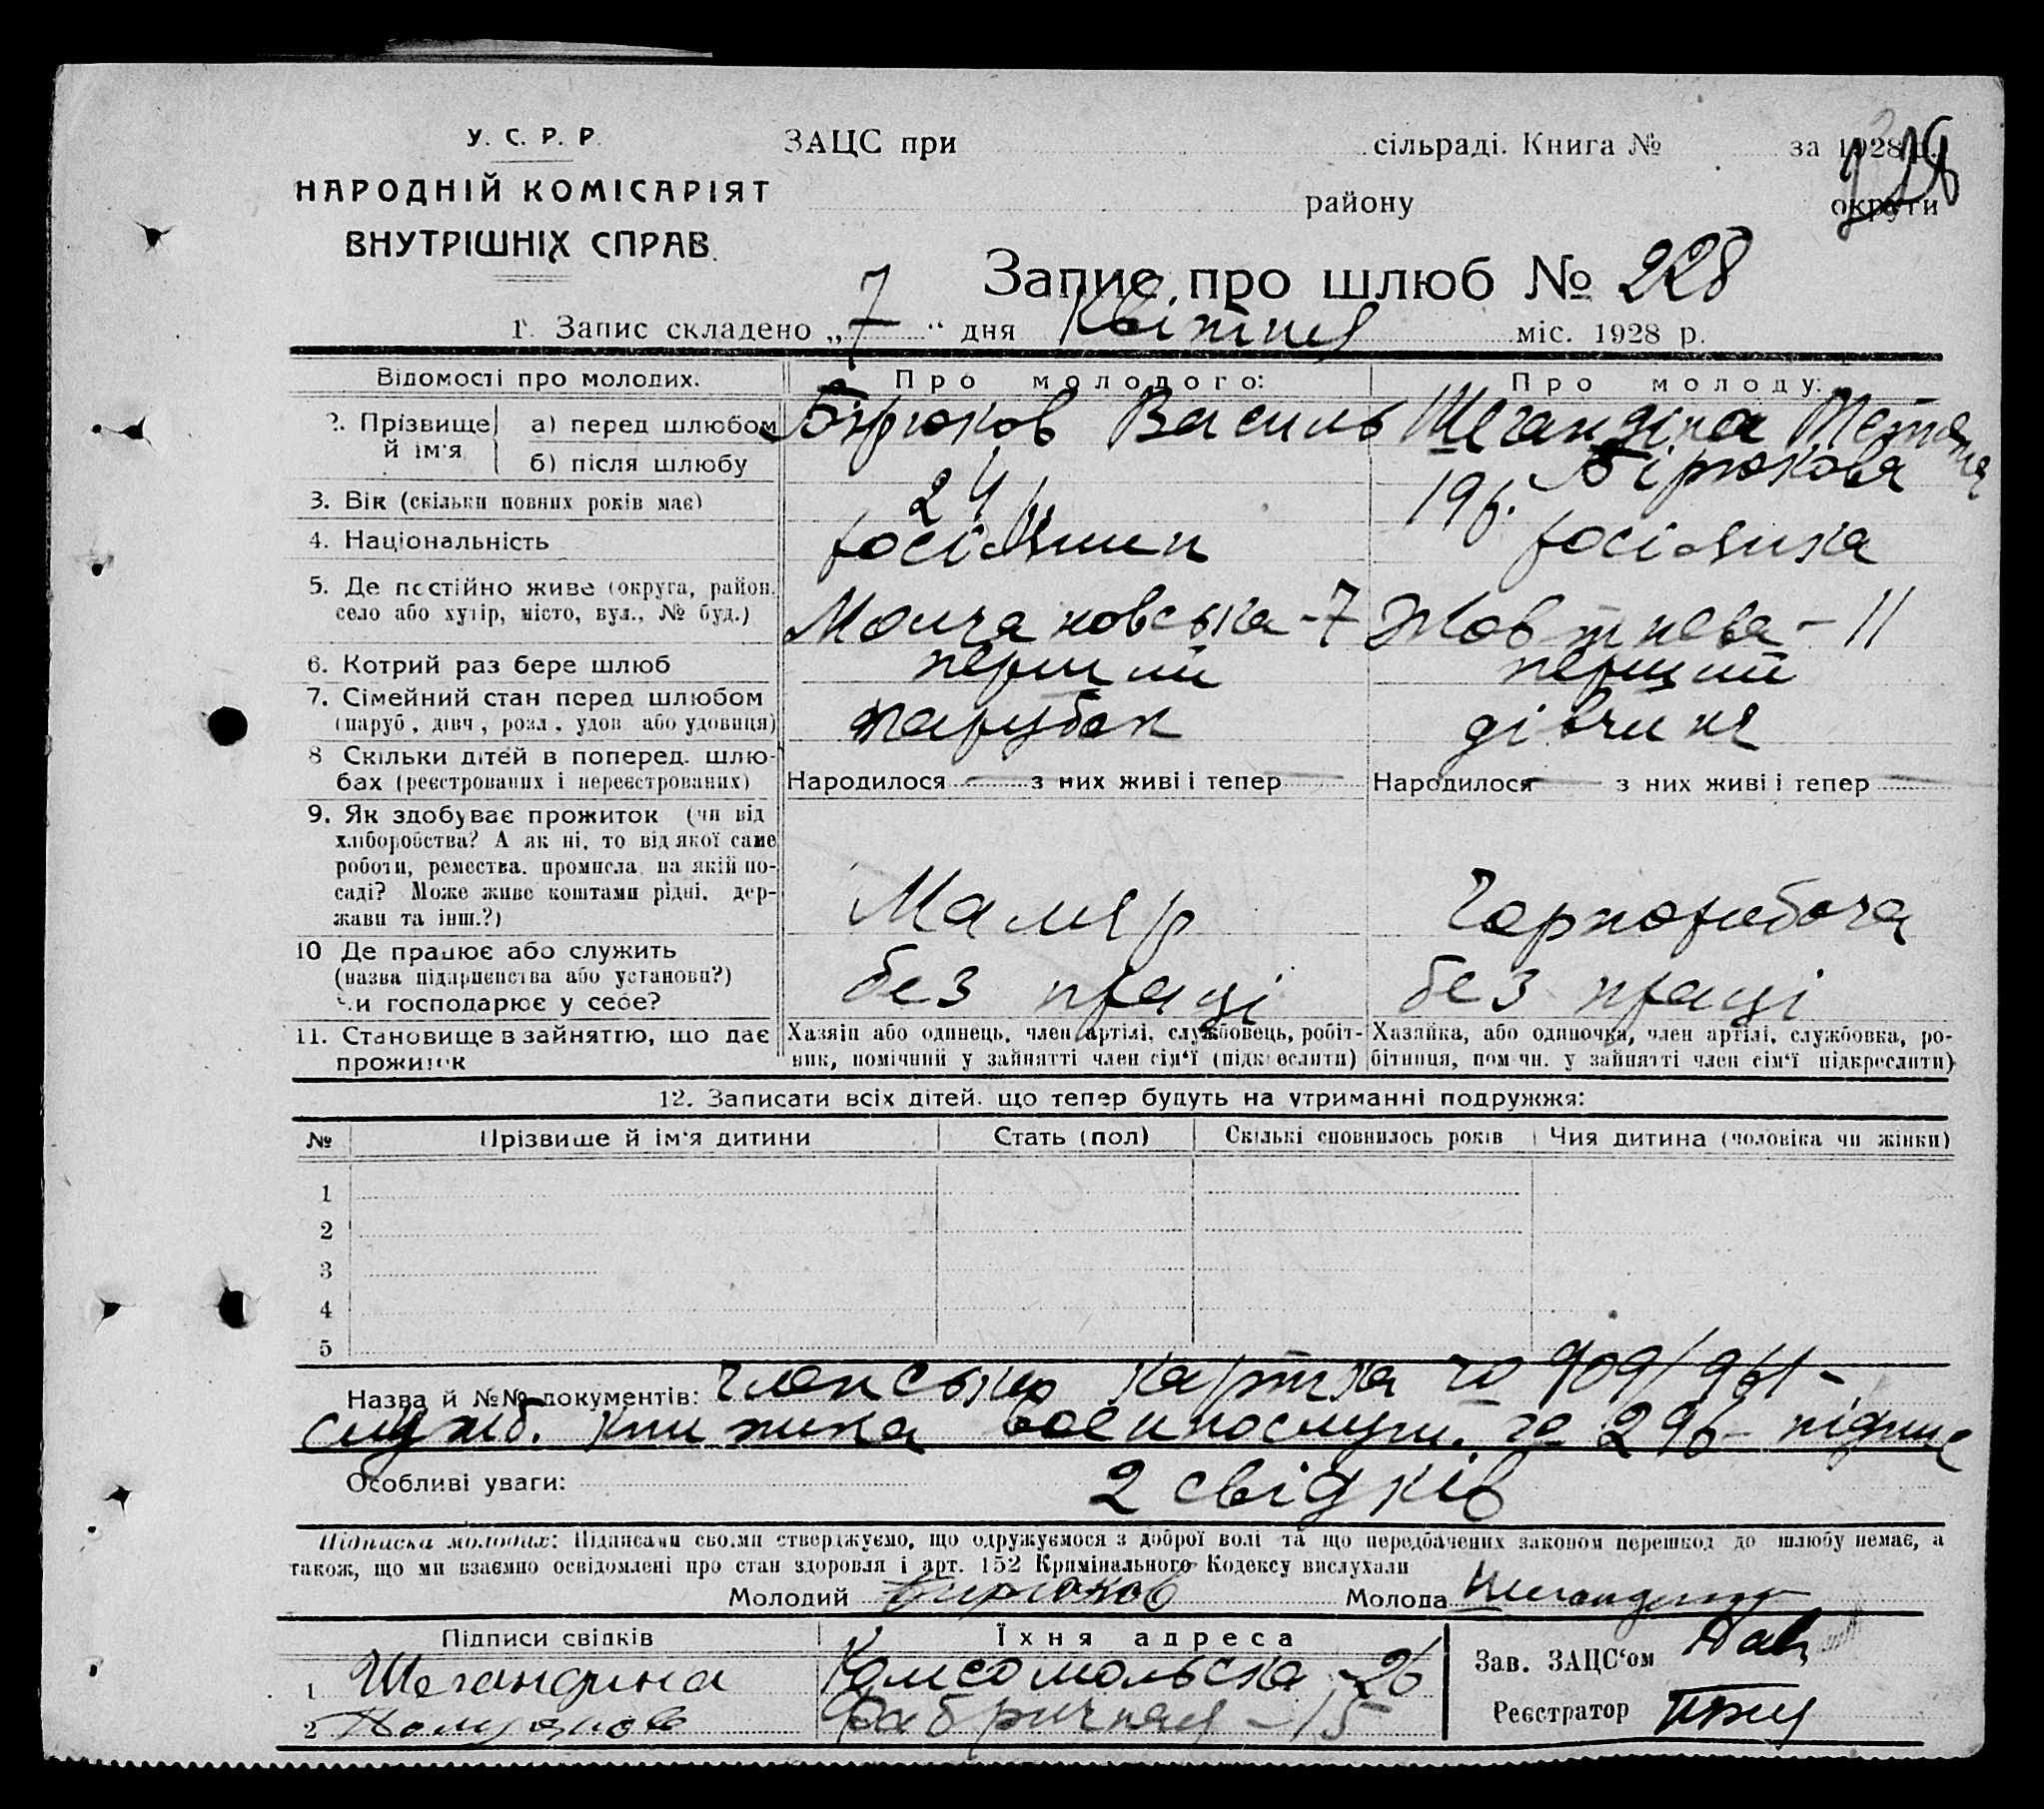 У. С. Р. Р.
НАРОДНІЙ КОМІСАРІЯТ
ВНУТРІШНІХ СПРАВ.
ЗАЦС при сільраді. Книга № за 1928 р.
району округи
Запис про шлюб № 228
1. Запис складено „7“ дня Квітня міс. 1928 р.
Відомості про молодих. Про молодого: Про молоду:
2. Прізвище й ім'я
а) перед шлюбом Бірюков Василь Шегандіна Тетяна
б) після шлюбу Бірюкова
3. Вік (скільки повних років має) 24 19 р.
4. Національність росіянин росіянка
5. Де постійно живе (округа, район, Молчановська - 7 Жовтнева - 11
село або хутір, місто, вул., № буд.)
6. Котрий раз бере шлюб перший перший
7. Сімейний стан перед шлюбом парубок дівчина
(паруб., дівч., розл., удов. або удовиця)
8 Скільки дітей в поперед. шлю-
бах (реєстрованих і нереєстрованих) Народилося — з них живі і тепер — Народилося — з них живі і тепер —
9. Як здобуває прожиток (чи від
хліборобства? А як ні, то від якої саме
роботи, ремества, промисла, на якій по-
саді? Може живе коштами рідні, дер-
жави та інш.?) Маляр Чорноробоча
10 Де працює або служить
(назва підприємства або установи?) без праці без праці
Чи господарює у себе?
11. Становище в зайняттю, що дає
прожиток
Хазяїн або одинець, член артілі, службовець, робіт-
ник, помічний у зайнятті член сім'ї (підкреслити)
Хазяйка, або одиночка, член артілі, службовка, ро-
бітниця, помічн. у зайнятті член сім'ї підкреслити)
12. Записати всіх дітей, що тепер будуть на утриманні подружжя:
№ Прізвище й ім'я дитини Стать (пол) Скількі сповнилось років Чия дитина (чоловіка чи жінки)
1
2
3
4
5
Назва й №№ документів: членська картка
служб. книжка 296 -
Особливі уваги: 2 свідків
Підписка молодих: Підписами своїми стверджуємо, що одружуємося з доброї волі та що передбачених законом перешкод до шлюбу немає, а
також, що ми взаємно освідомлені про стан здоровля і арт. 152 Кримінального Кодексу вислухали
Молодий Бирюков Молода Шегандина
Підписи свідків Їхня адреса
1 Шегандина Комсомольска - 26
2 Фабричная - 15
Зав. ЗАЦС'ом
Реєстратор